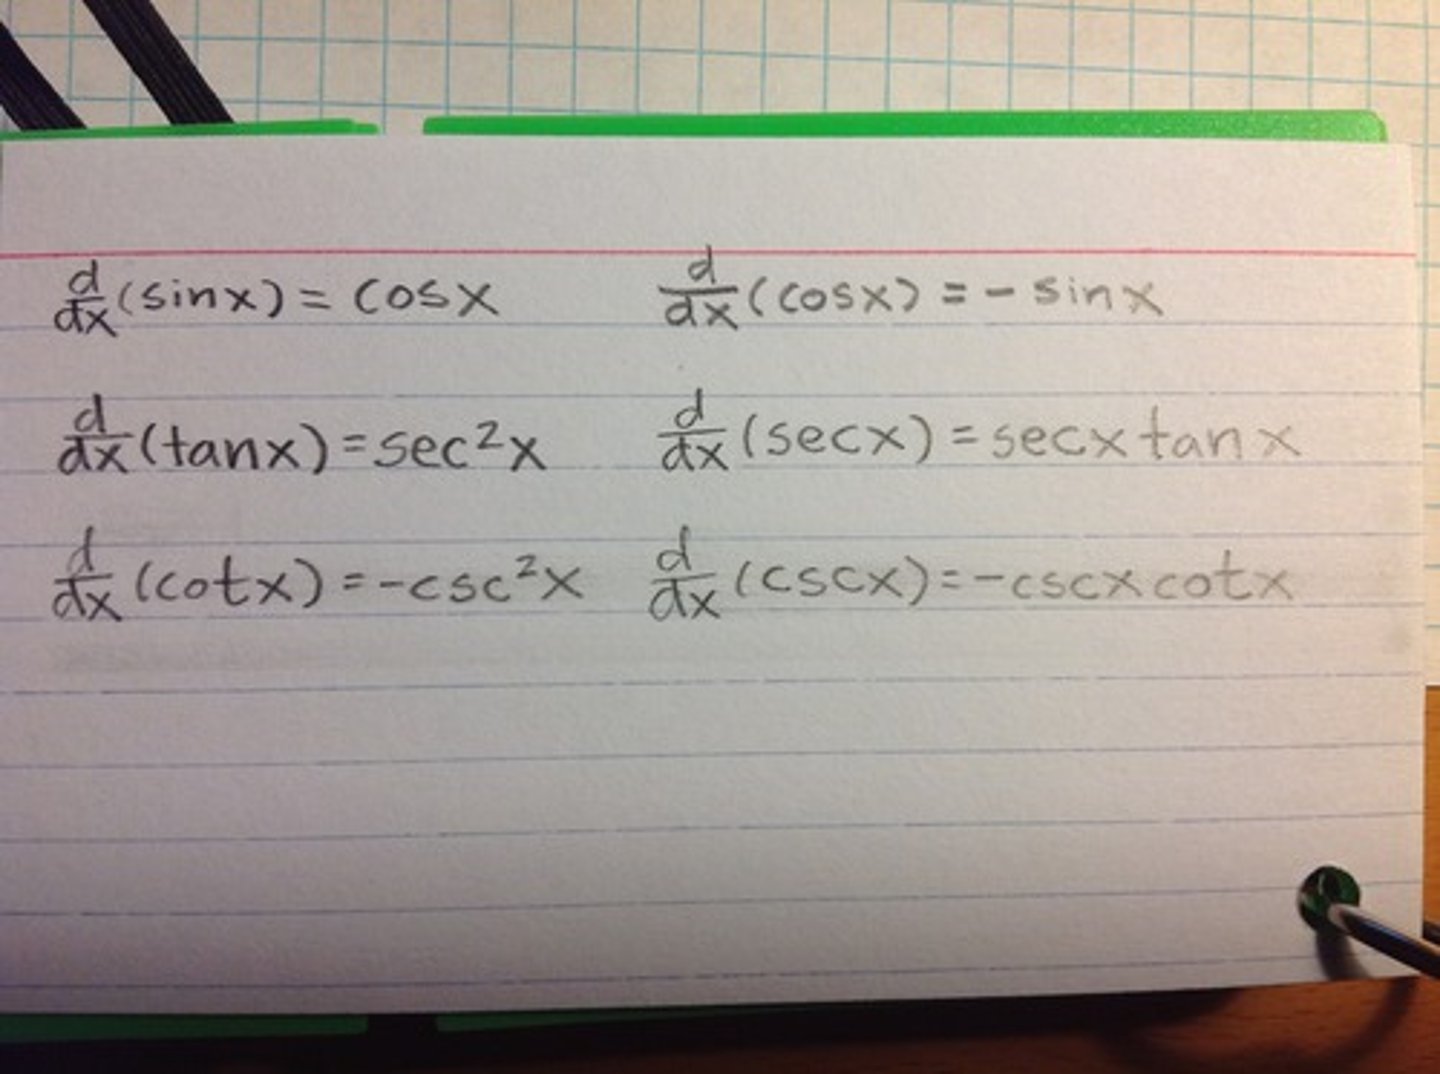 d/dx (sinx) = cosx d/dx (cosx) = - sinx
d/dx (tanx) = sec²x d/dx (secx) = secx tanx
d/dx (cotx) = -csc²x d/dx (cscx) = -cscx cotx